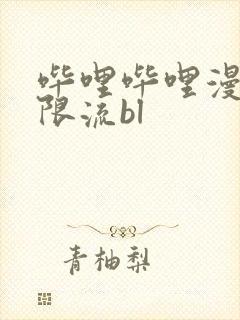 哔哩哔哩漫
限流bl
青柚梨